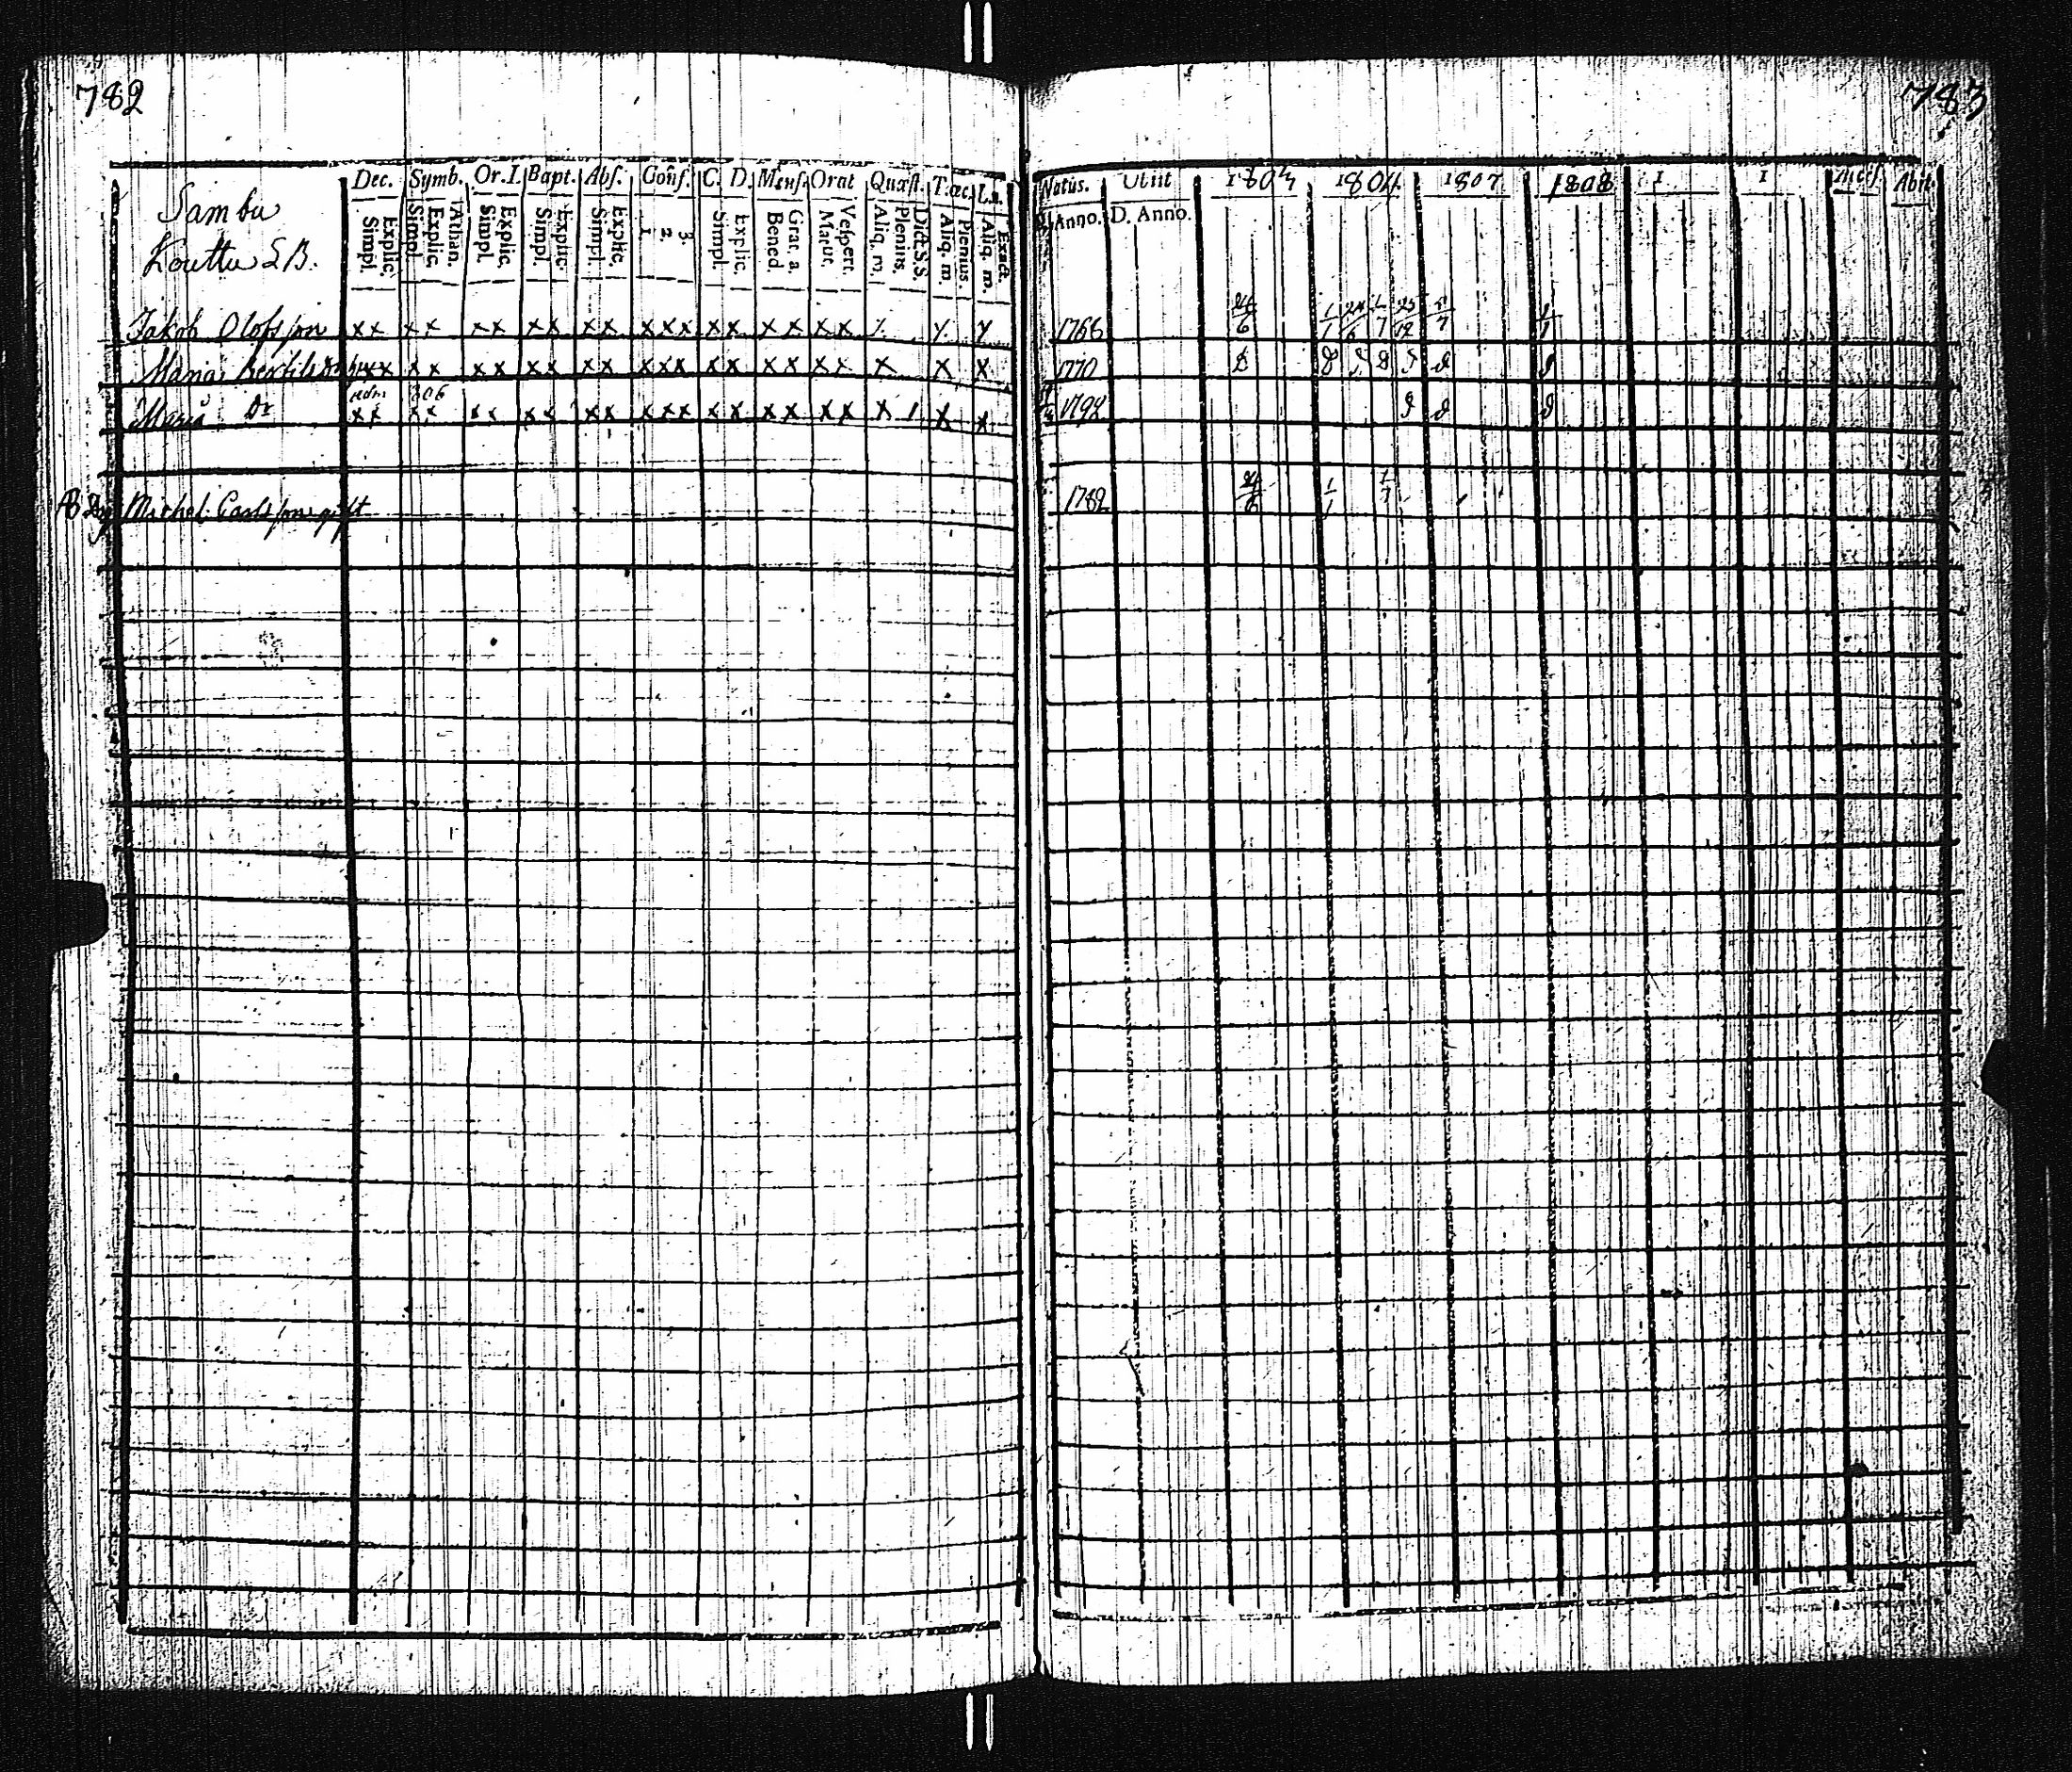 782
783
Sambu
Kouttu S.B.
Dec. Symb. Or.I. Bapt. Abſ. Conf. C. D. Menſ. Orat Quæſt. T.œc. L.n.
Explic. Simpl. Athan. Explic. Simpl. Explic. Simpl. Explic. Simpl. Explic. Simpl. 3. 2. 1. Explic. Simpl. Grat. a. Bened. Veſpert. Matut. Dict.S.S. Plenius. Aliq. m. Plenius. Aliq. m. Exact. Aliq. m.
Natus. Obiit 1804 1807 1808 1 1 Acceſ. Abit.
D. Anno. D. Anno.
Jakob Olofsson xx xx xx xx xx xxx xx xx xx x x x 1766 24/6 1/1 24/6 1/7 25/12 5/7 1/1
Maria xx xx xx xx xx xxx xx xx xx x x x 1770
adm 806
Maria Dr xx xx xx xx xx xxx xx xx xx x x x 1792
Michel Carlsson gift 1782 24/6 1/1 1/7